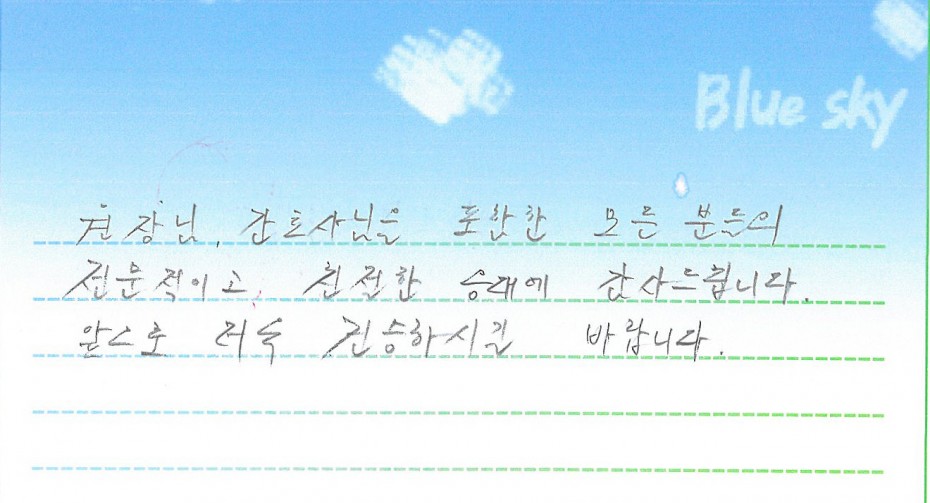 Blue sky
원장님, 간호사님을 포함한 모든 분들의
전문적이고, 친절한 응대에 감사드립니다.
앞으로 더욱 건승하시길 바랍니다.